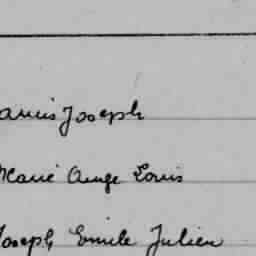 Joseph
Marie Ange Louis
Joseph Emile Julien